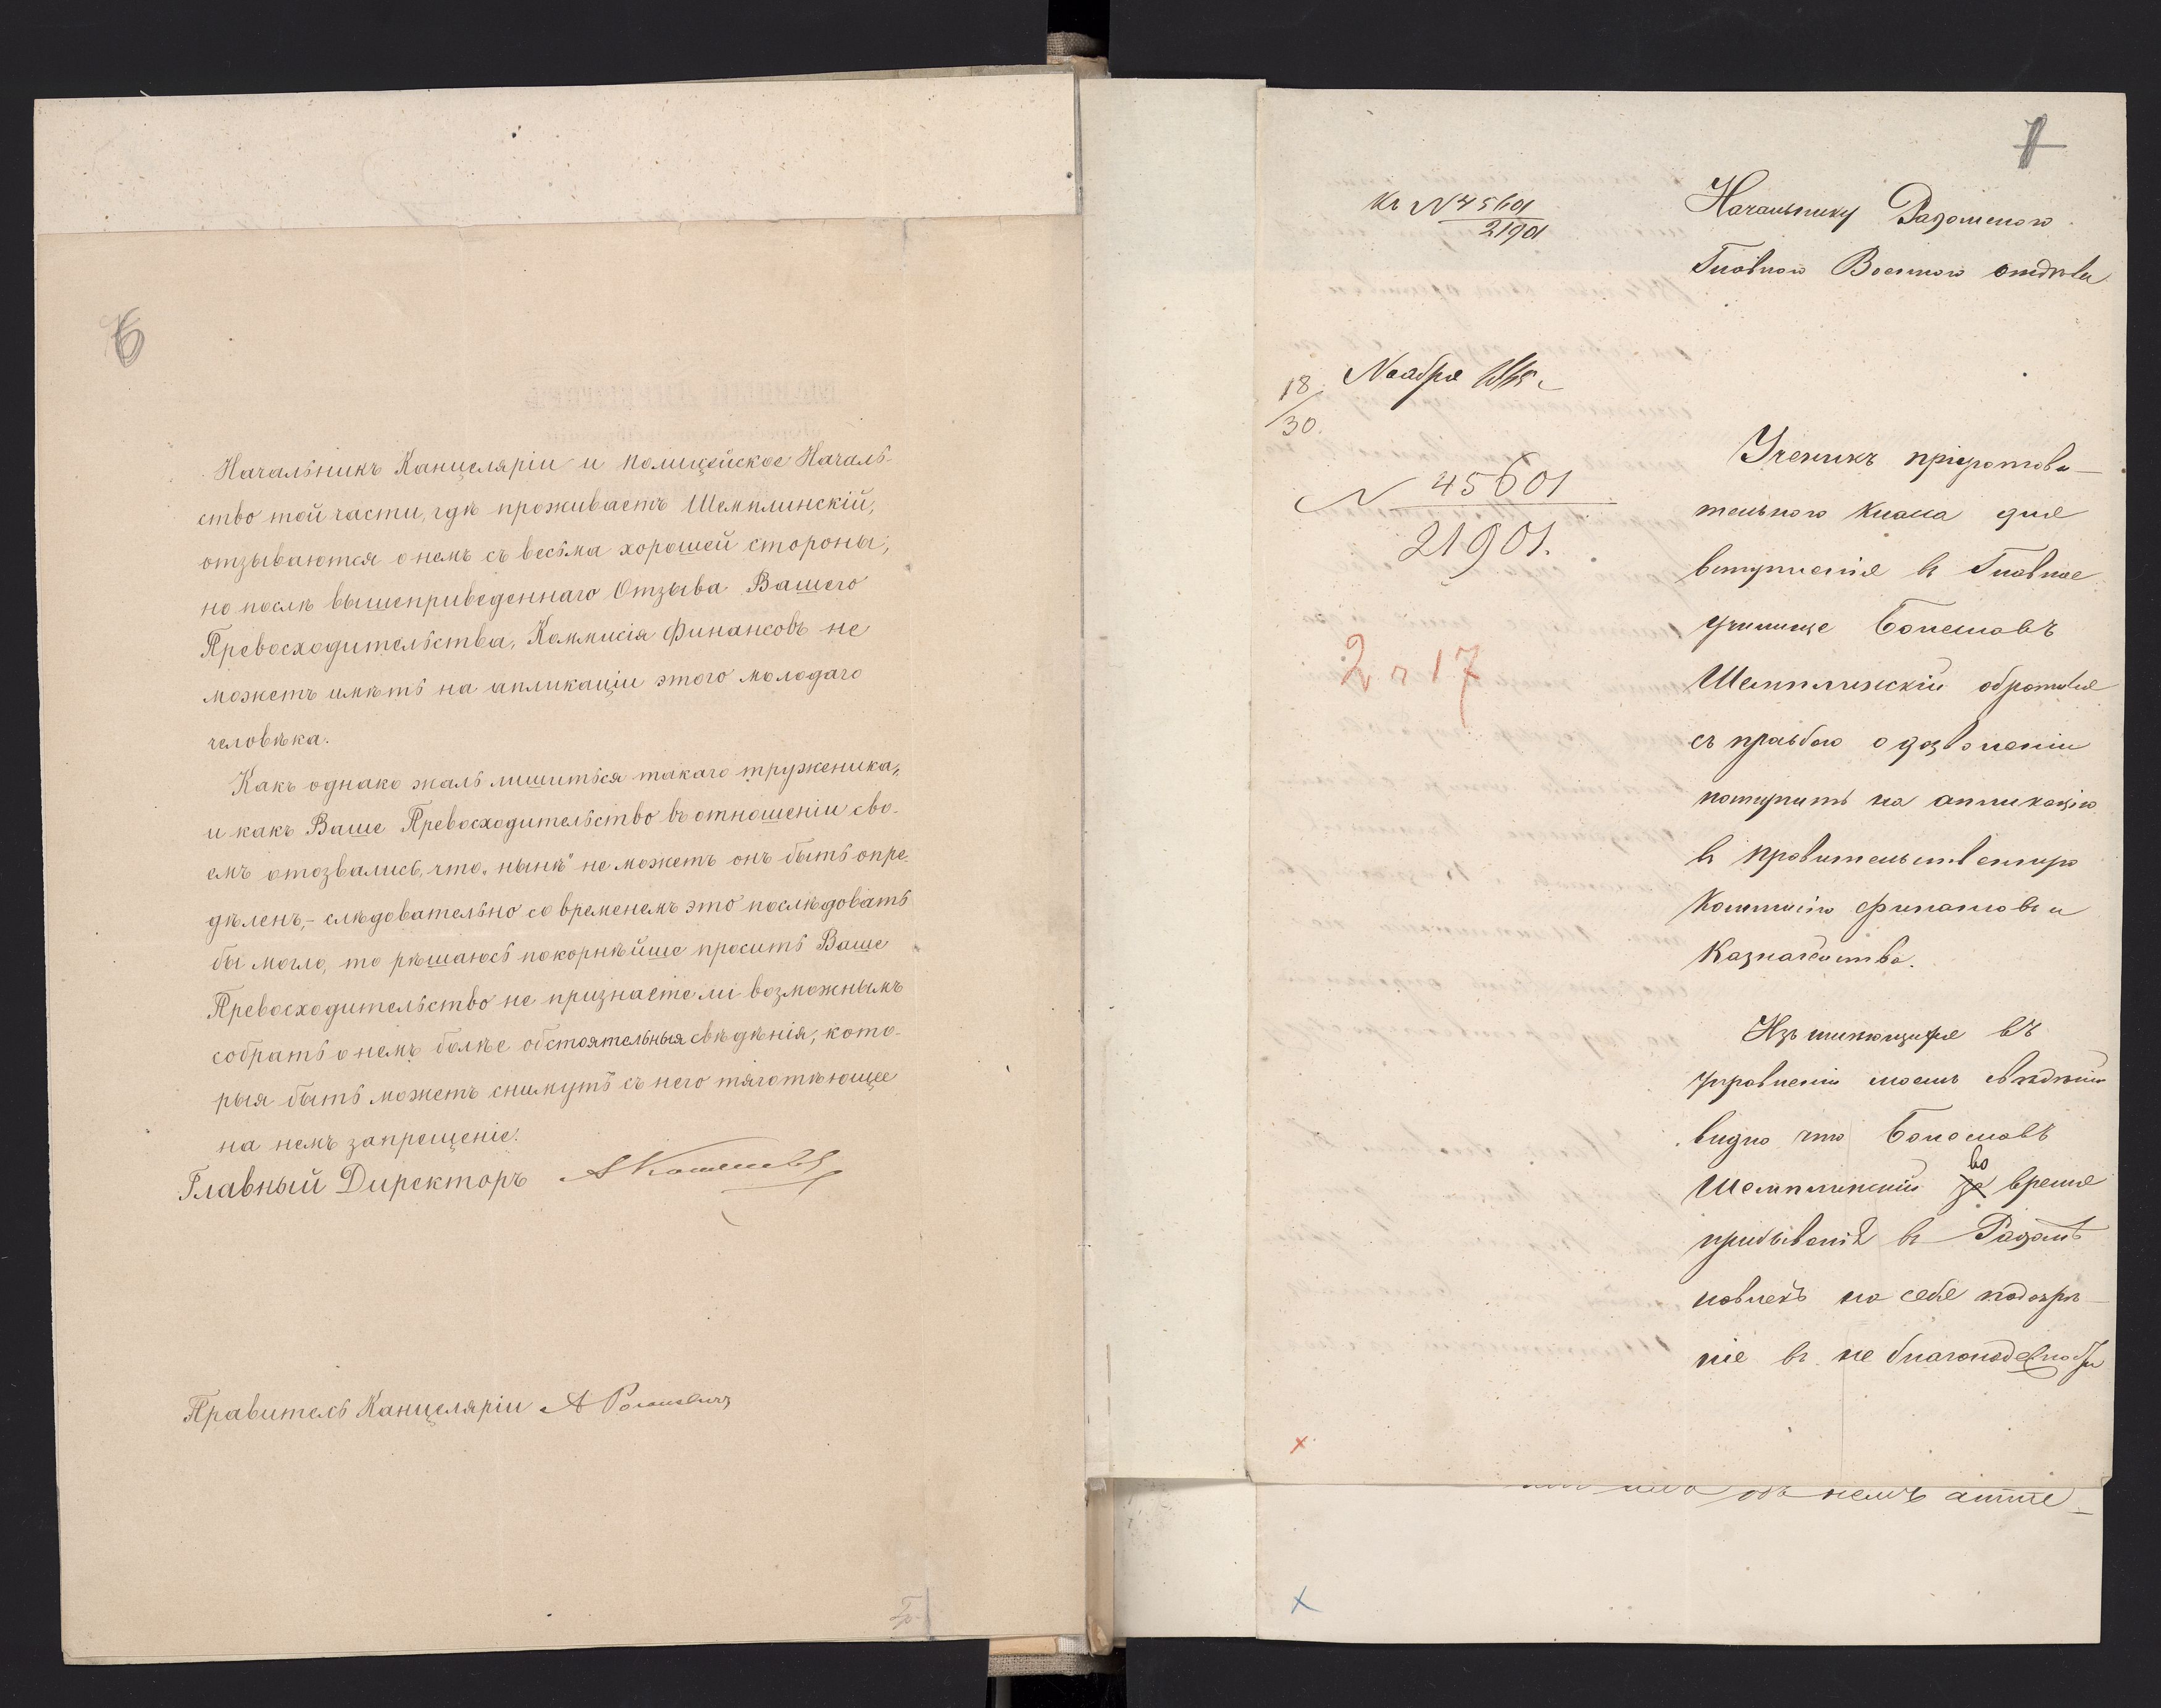 6
Начальникъ Канцеляріи и полицейское Началь-
ство той части, гдѣ проживаетъ Шемплинскій,
отзываются о немъ съ весьма хорошей стороны;
но послѣ вышеприведеннаго Отзыва Вашего
Превосходительства, Коммисія Финансовъ не
можетъ имѣть на апликаціи этого молодаго
человѣка.
Какъ однако жаль лишиться такаго труженика,
и какъ Ваше Превосходительство въ отношеніи сво-
емъ отозвались, что „нынѣ“ не можетъ онъ быть опре-
дѣленъ,- слѣдовательно со временемъ это послѣдовать
бы могло, то рѣшаюсь покорнѣйше просить Ваше
Превосходительство не признаете ли возможнымъ
собрать о немъ болѣе обстоятельныя свѣдѣнія, кото-
рыя быть можетъ снимутъ съ него тяготѣющее
на немъ запрещеніе.
Главный Директоръ
Правитель Канцеляріи А
7
Къ N 45601
21901
Начальнику Радомскаго
Главнаго Военнаго отдѣла
18/30 Ноября 1865 г
N 45601
21901.
2 г 17
Ученикъ приготови-
тельнаго класса для
вступленія въ Главное
училище Болеславъ
Шемплинскій обратился
съ прозьбою о дозволеніи
поступить на апликацію
въ правительственную
Коммисію финансовъ и
Казначейства.
Изъ имѣющихся въ
управленіи моемъ свѣдѣній
видно что Болеславъ
Шемплинскій во время
пребыванія въ Радомѣ
навлекъ на себя подозрѣ-
ніе въ не благонадежности
объ немъ атте-